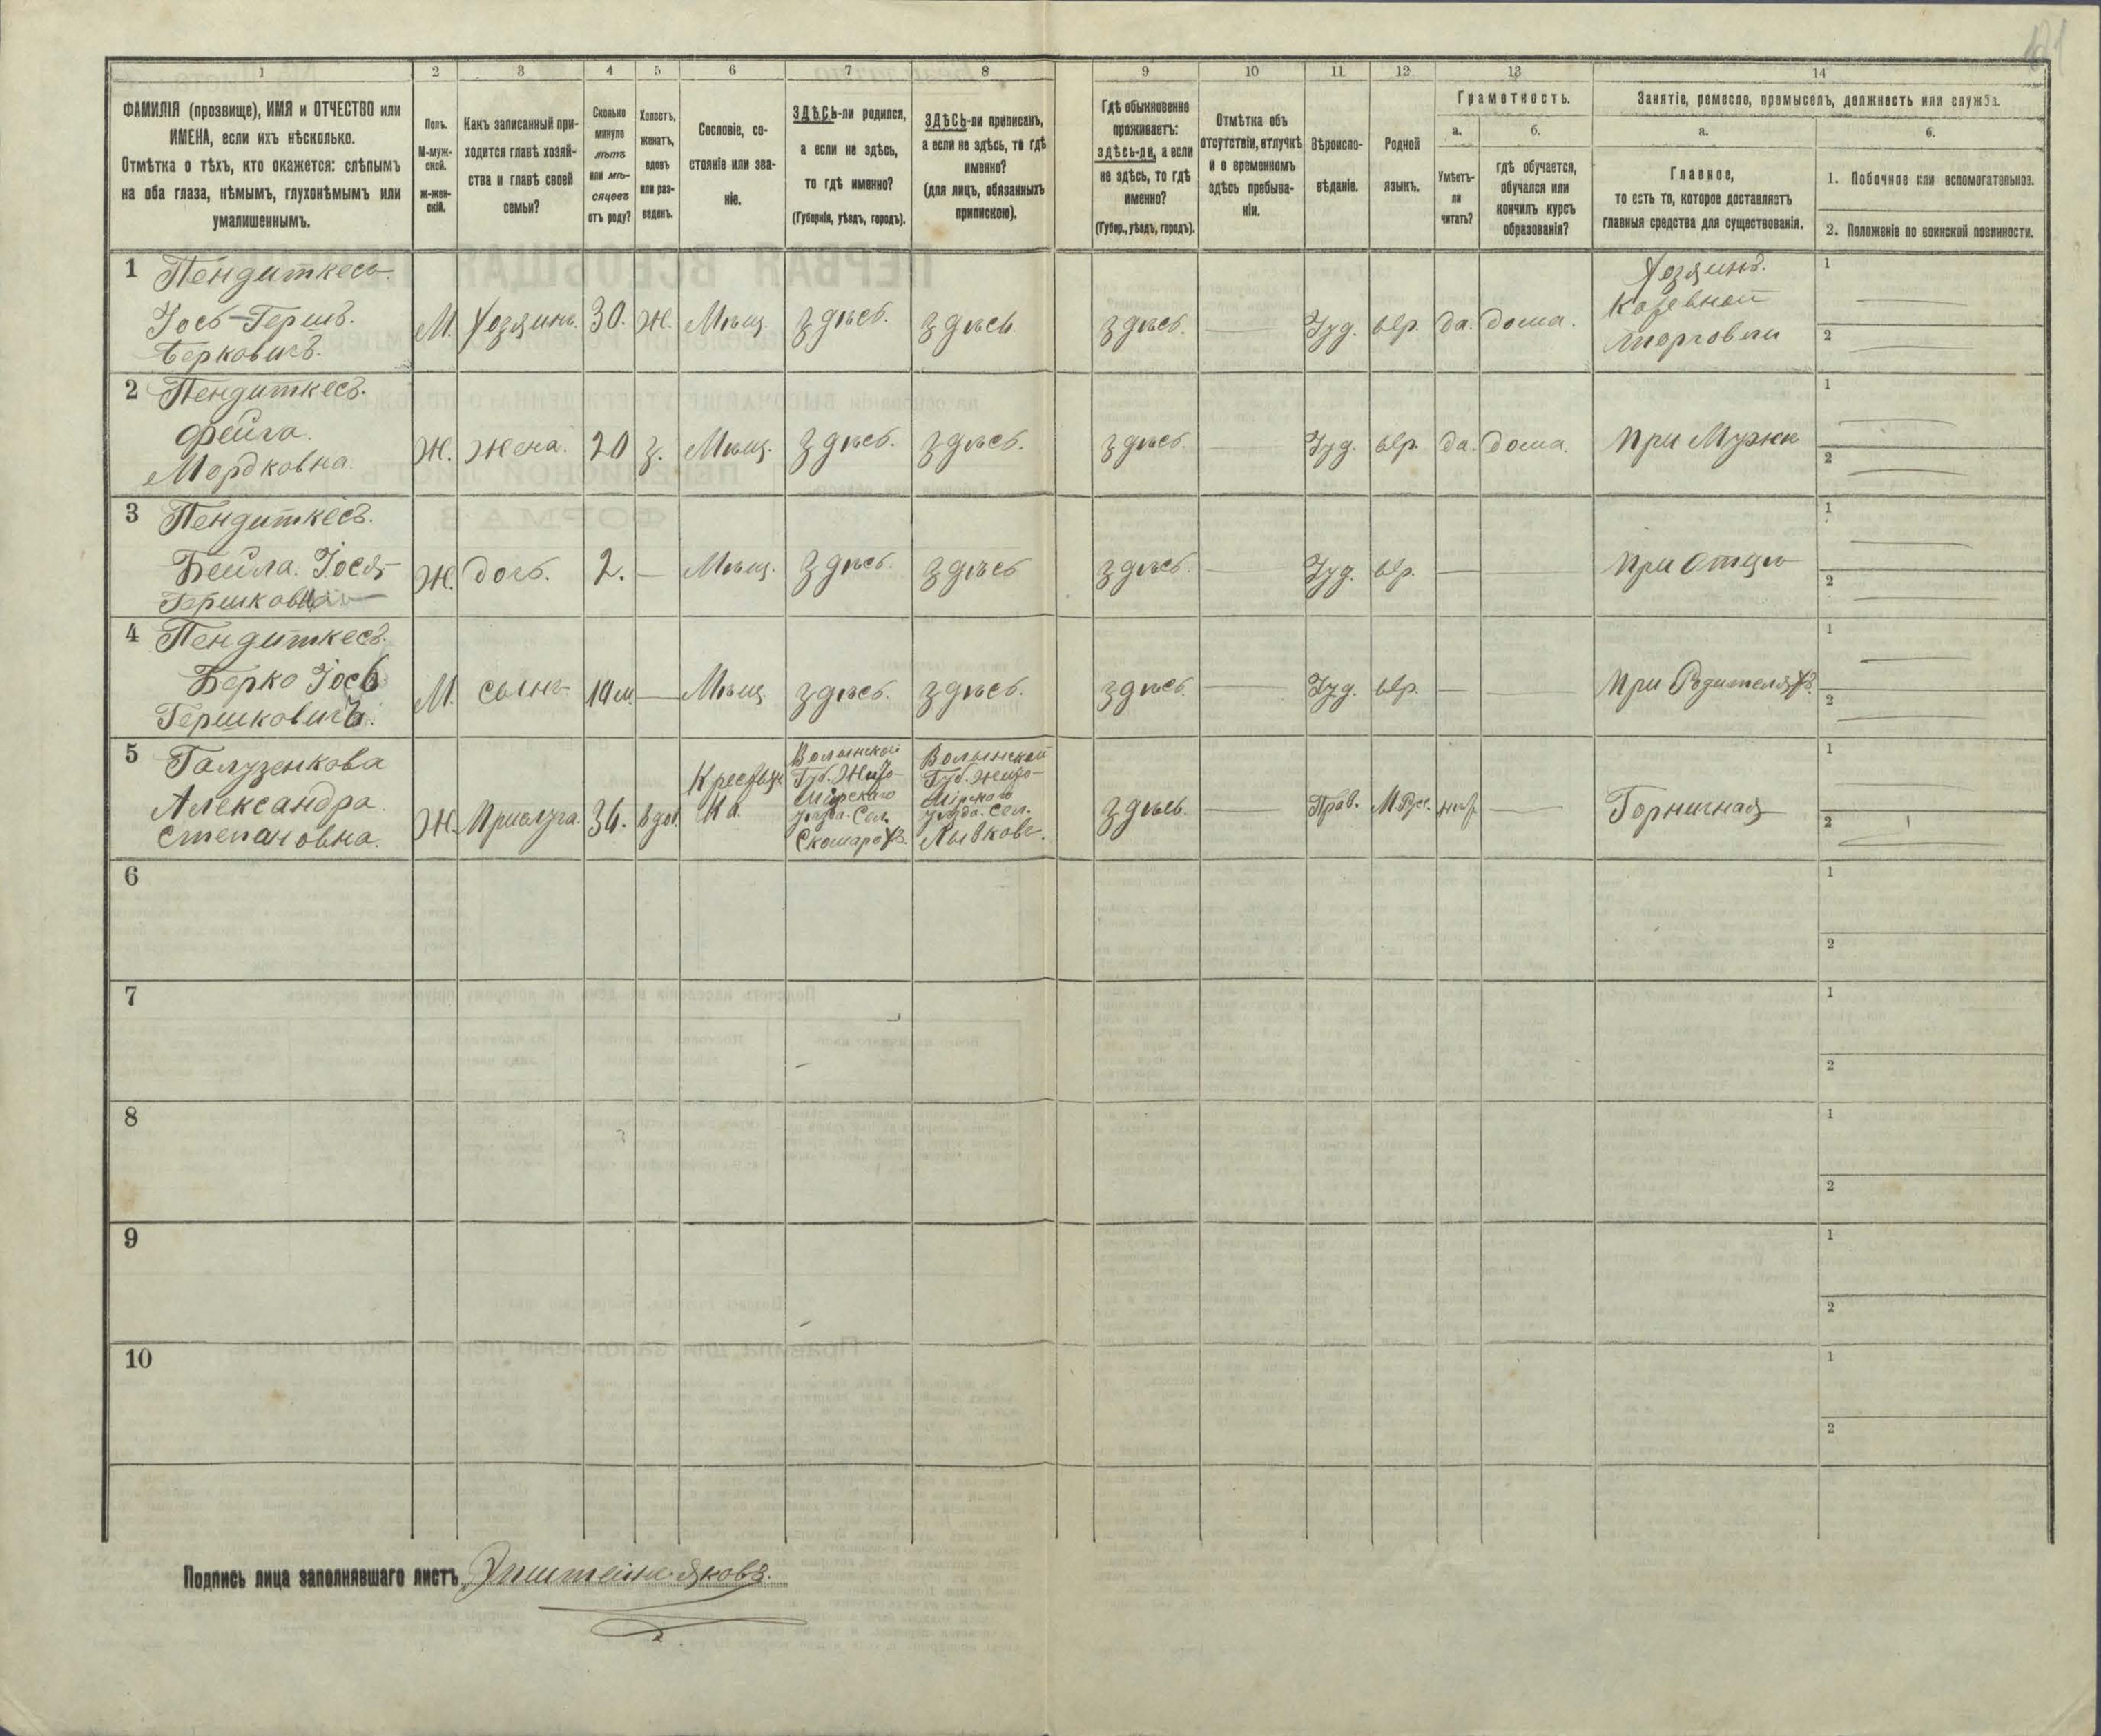 1 2 3 4 5 6 7 8 9 10 11 12 13 14
ФАМИЛІЯ (прозвище), ИМЯ и ОТЧЕСТВО или
ИМЕНА, если ихъ нѣсколько.
Отмѣтка о тѣхъ, кто окажется: слѣпымъ
на оба глаза, нѣмымъ, глухонѣмымъ или
умалишеннымъ.
Полъ.
М-муж-
ской.
Ж-жен-
скій.
Какъ записанный при-
ходится главѣ хозяй-
ства и главѣ своей
семьи?
Сколько
минуло
лѣтъ
или мѣ-
сяцевъ
отъ роду?
Холостъ,
женатъ,
вдовъ
или раз-
веденъ.
Сословіе, со-
стояніе или зва-
ніе.
ЗДѢСЬ-ли родился,
а если не здѣсь,
то гдѣ именно?
(Губернія, уѣздъ, городъ).
ЗДѢСЬ-ли приписанъ,
а если не здѣсь, то гдѣ
именно?
(для лицъ, обязанныхъ
припискою).
Гдѣ обыкновенно
проживаетъ:
здѣсь-ли, а если
не здѣсь, то гдѣ
именно?
(Губер., уѣздъ, городъ).
Отмѣтка объ
отсутствіи, отлучкѣ
и о временномъ
здѣсь пребыва-
ніи.
Вѣроиспо-
вѣданіе.
Родной
языкъ.
Грамотность.
а.
Умѣетъ-
ли
читать?
б.
гдѣ обучается,
обучался или
кончилъ курсъ
образованія?
Занятіе, ремесло, промыселъ, должность или служба.
а.
Главное,
то есть то, которое доставляетъ
главныя средства для существованія.
б.
1. Побочное или вспомогательное.
2. Положеніе по воинской повинности.
1 Пендиткесъ
Іось-Гершъ.
Берковичъ.
М. Хозяинъ. 30. Ж. Мѣщ. здѣсь. здѣсь здѣсь. Іуд. Евр. да. дома.
Хозяинъ.
Кожевной
торговли
1
2
2 Пендиткесъ.
Фейга.
Мордковна.
Ж. Жена. 20 з. Мѣщ. здѣсь. здѣсь. здѣсь. Іуд. Евр. да. дома. при Мужѣ
1
2
3 Пендиткесъ.
Бейла. Іося-
Гершковна
Ж. дочь. 2. — Мѣщ. здѣсь. здѣсь здѣсь. Іуд. Евр. — при Отцѣ
1
2
4 Пендиткесъ.
Берко Іось
Гершковичъ.
М. сынъ 10 м. — Мѣщ. здѣсь. здѣсь. здѣсь. Іуд. Евр. — при Родителяхъ.
1
2
5 Галузенкова
Александра.
Степановна.
Ж. Прислуга. 34. вдов.
Крестьян
ка.
Волынской
Губ. Жито-
мірскаго
уѣзда. Сел.
Волынской
Губ. Жито-
мірскаго
уѣзда. Сел.
здѣсь. Прав. М.Рус. нѣт Горничная
1
2
6
1
2
7
1
2
8
1
2
9
1
2
10
1
2
Подпись лица заполнявшаго листъ Эпштейнъ Яковъ.